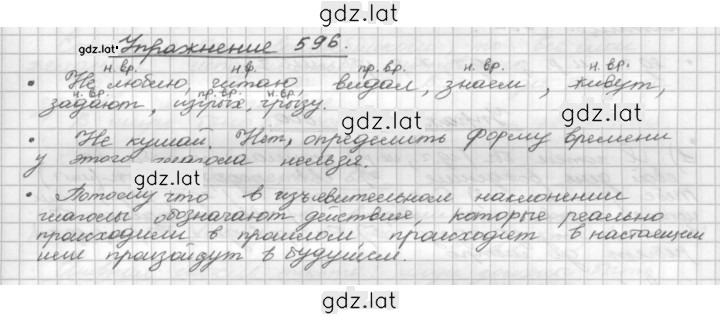 gdz.lat
gdz.lat
Упражнение 596.
н. вр. н.ф. пр. вр. н. вр. н. вр.
• Не люблю, читаю видал, знаем, живут,
н. вр. пр. вр. н. вр.
задают, изгрых, грызу.
gdz.lat
• Не кушай. Нет, определить форму времени
у этого глагола нельзя.
gdz.lat
• Потому что в изъявительном наклонении
глаголы обозначают действие, которые реально
gdz.lat
происходили в прошлом, происходят в настаещем
или произойдут в будущем.
gdz.lat